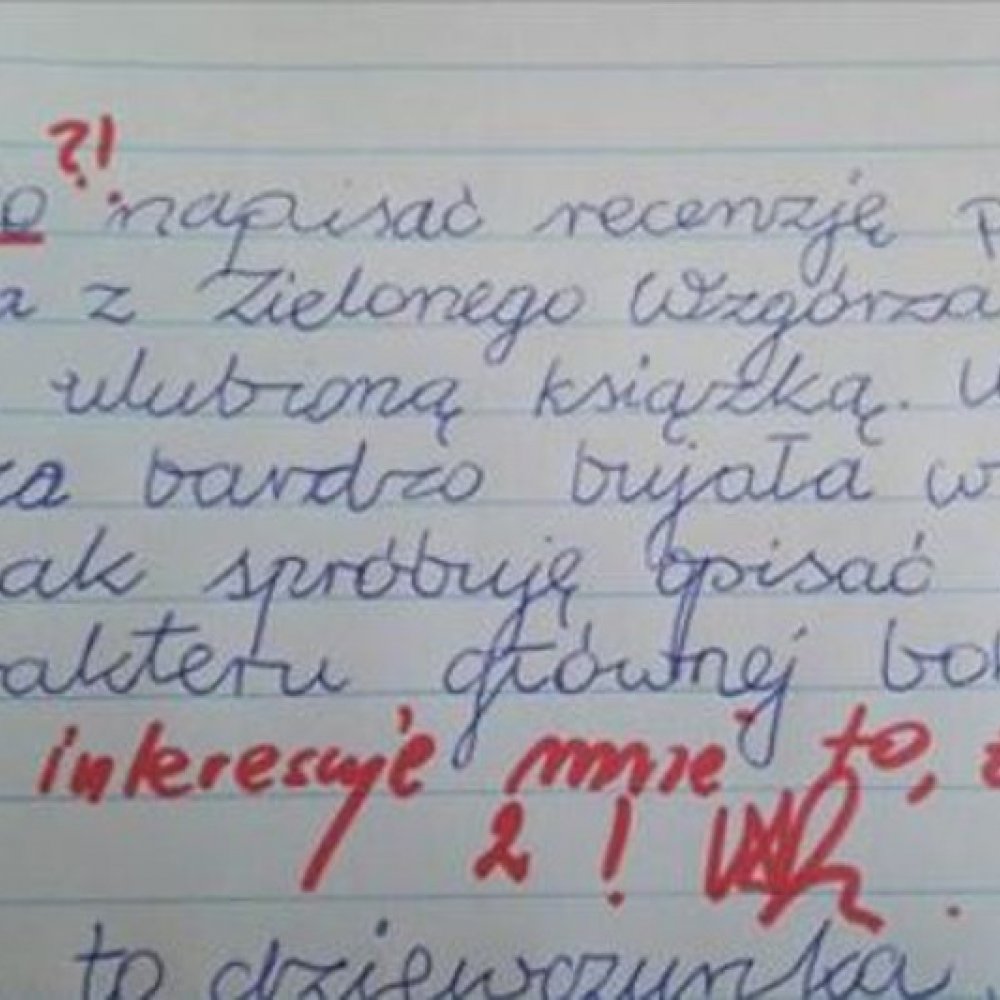 ?!
napisać recenzję
z Zielonego Wzgórza
ulubioną książką.
bardzo bujała w
spróbuję opisać
głównej
interesuje mnie to,
2!
to dziewczynka